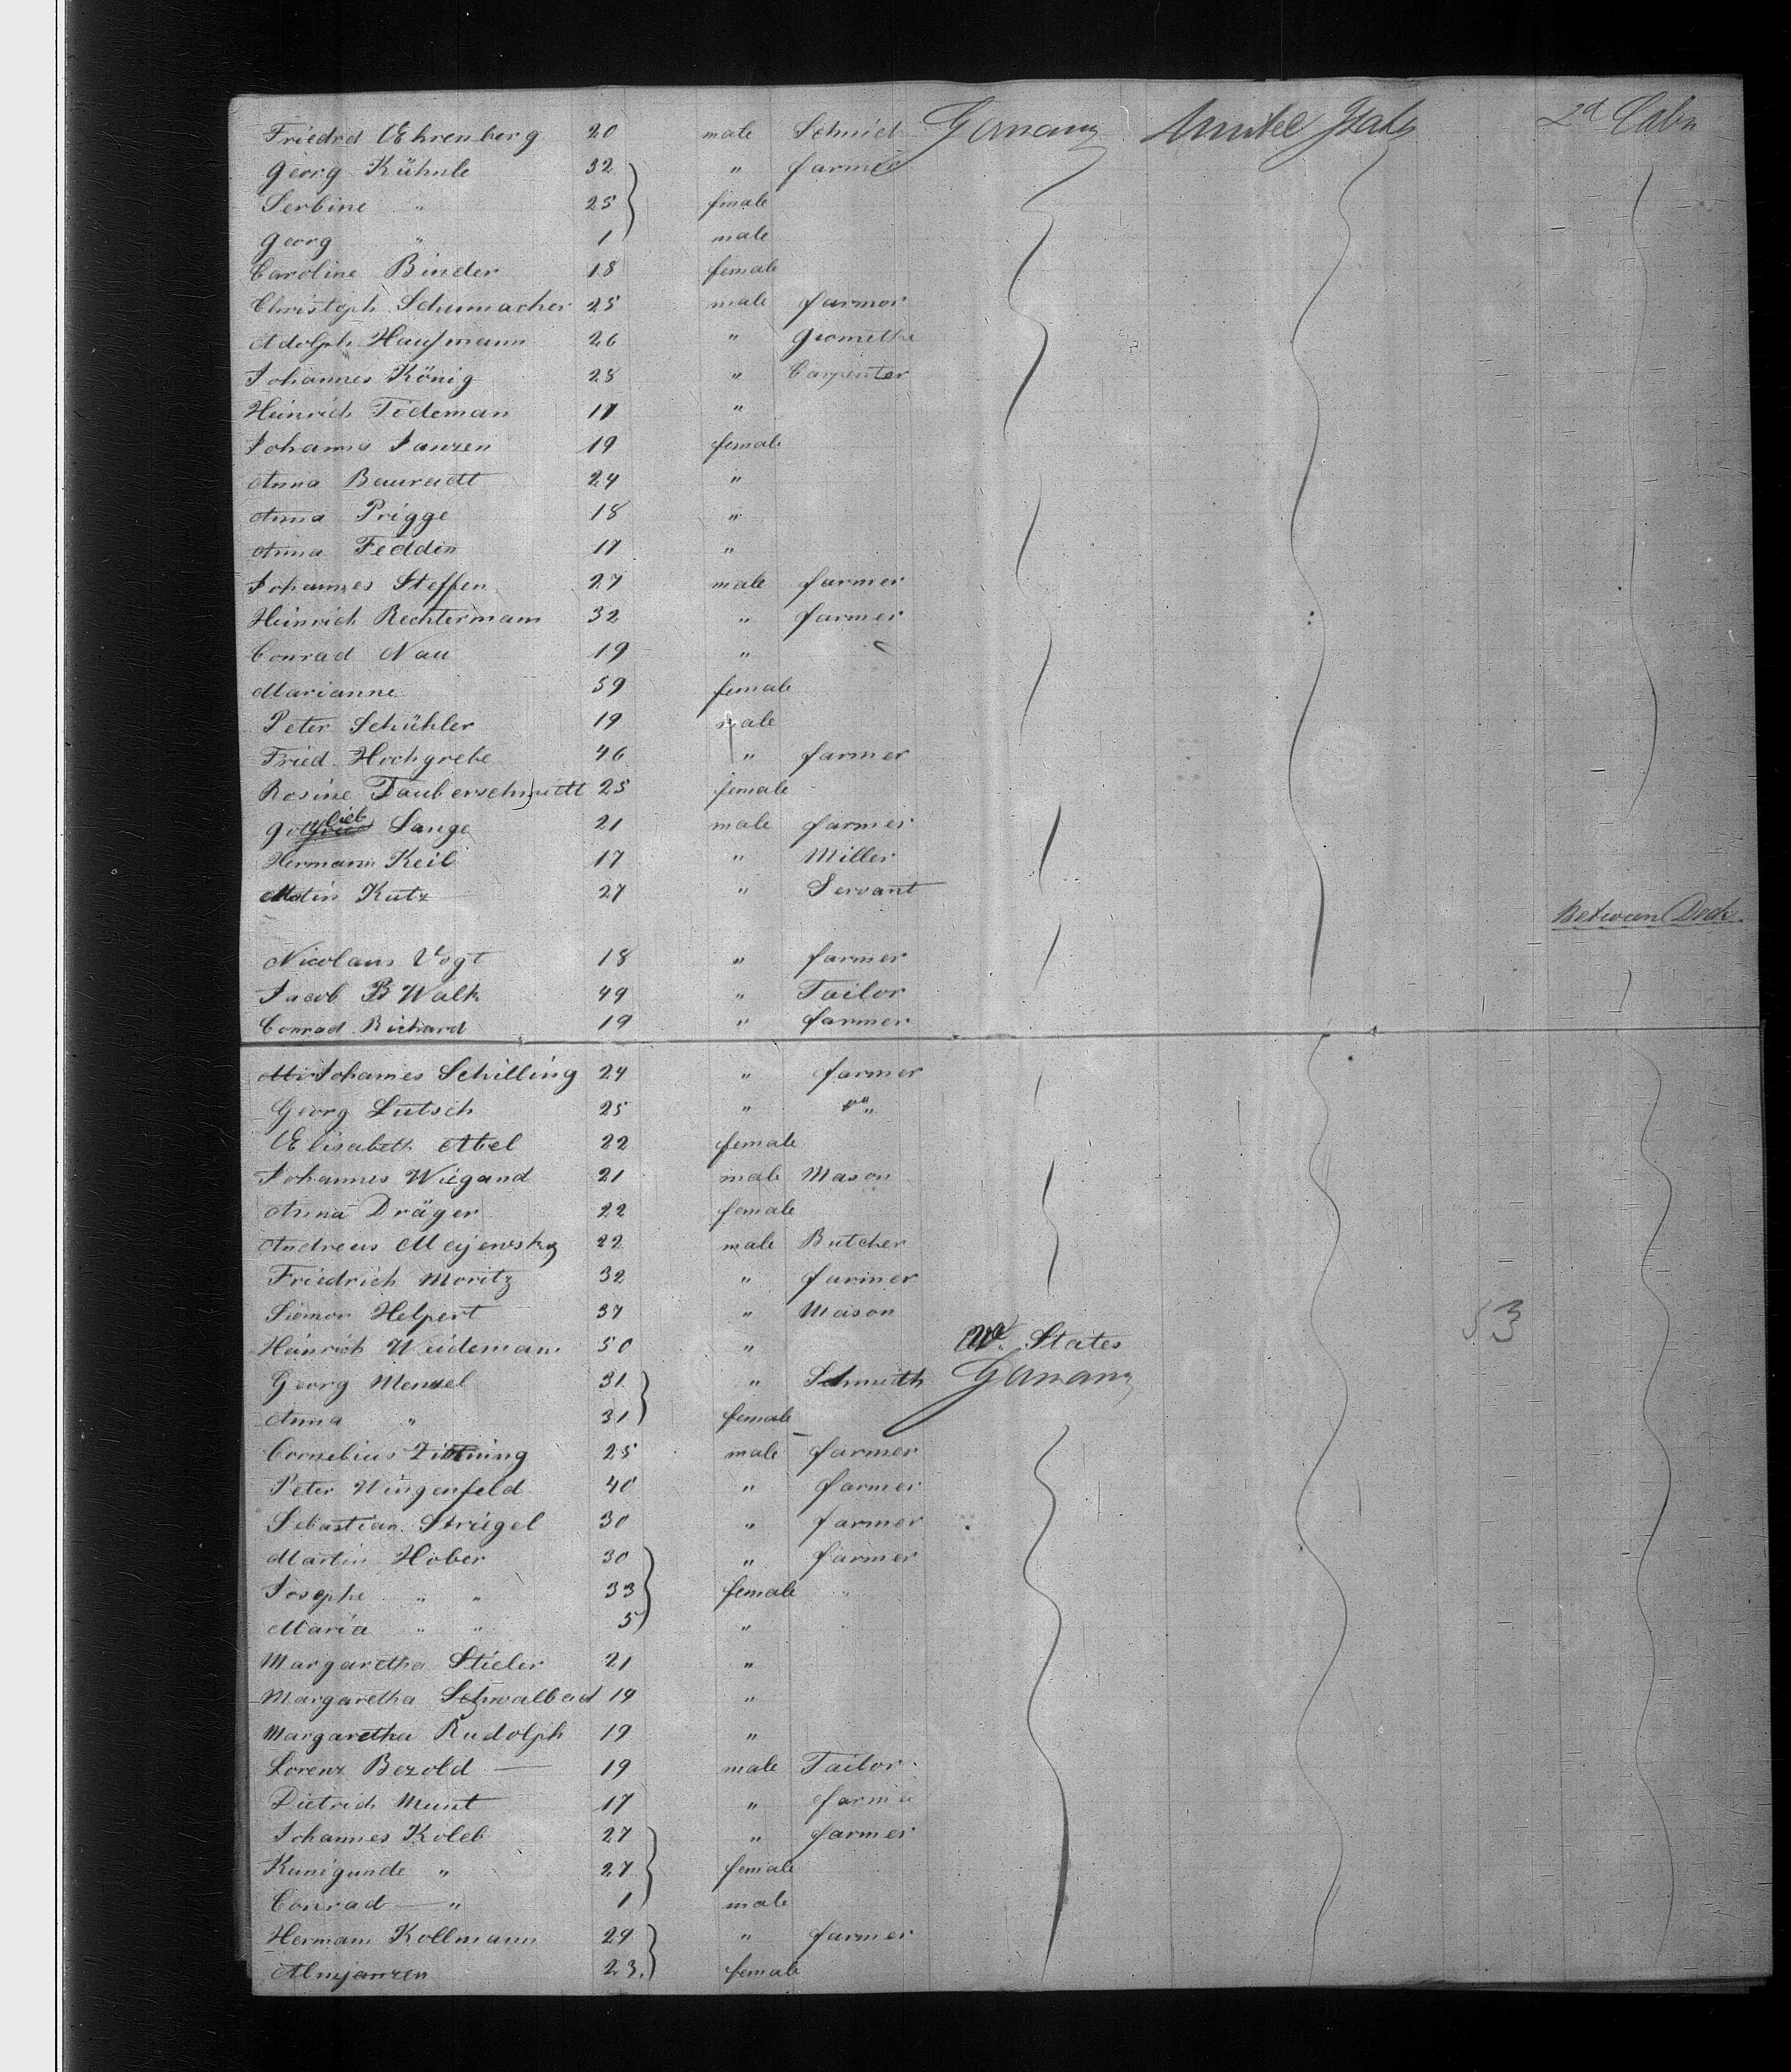 Friedrd Ehrenberg 20 male Schmid Germany United States 2d Cabin
Georg Kühnle 32 " farmer
Serbine " 25 female
Georg " 1 male
Caroline Binder 18 female
Christoph Schumacher 25 male farmer
Adolph Haufmann 26 "
Johannes König 28 " Carpenter
Heinrich Tideman 17 "
Johanna Janzen 19 female
Anna 24 "
Anna Prigge 18 "
Anna Feddin 17 "
Johannes Steffen 27 male farmer
Heinrich Rechtermann 32 " farmer
Conrad Nau 19 "
Marianne 59 female
Peter Schühler 19 male
Fried. Hochgrebe 46 " farmer
Rosine Tauberschmitt 25 female
Gottlieb Lange 21 male farmer
Hermann Keil 17 " Miller
Katz 27 " Servant
Between Deck
Nicolaus Vogt 18 " farmer
Jacob B Walk 49 " Tailor
Conrad Richard 19 " farmer
Johannes Schilling 24 " farmer
Georg Lutsch 25 " "
Elisabeth Abel 22 female
Johannes Wiegand 21 male Mason
Anna Dräger 22 female
Andreas Majewsky 22 male Butcher
Friedrich Moritz 32 " farmer
Simon Helpert 37 " Mason 53
Heinrich Weideman 50 " U. States
Georg Menzel 31 " Schmidth Germany
Anna " 31 female
Cornelius 25 male farmer
Peter Wingenfeld 40 " farmer
Sebastian Striegel 30 " farmer
Martin Hober 30 " farmer
Josephe " " 33 female
Maria " " 5 "
Margaretha Stieler 21 "
Margaretha Schwalbad 19 "
Margaretha Rudolph 19 "
Lorenz Bezold 19 male Tailor
Dietrich Munt 17 " farmer
Johannes Koleb 27 " farmer
Kunigunde " 27 female
Conrad " 1 male
Hermann Kollmann 29 " farmer
23 female